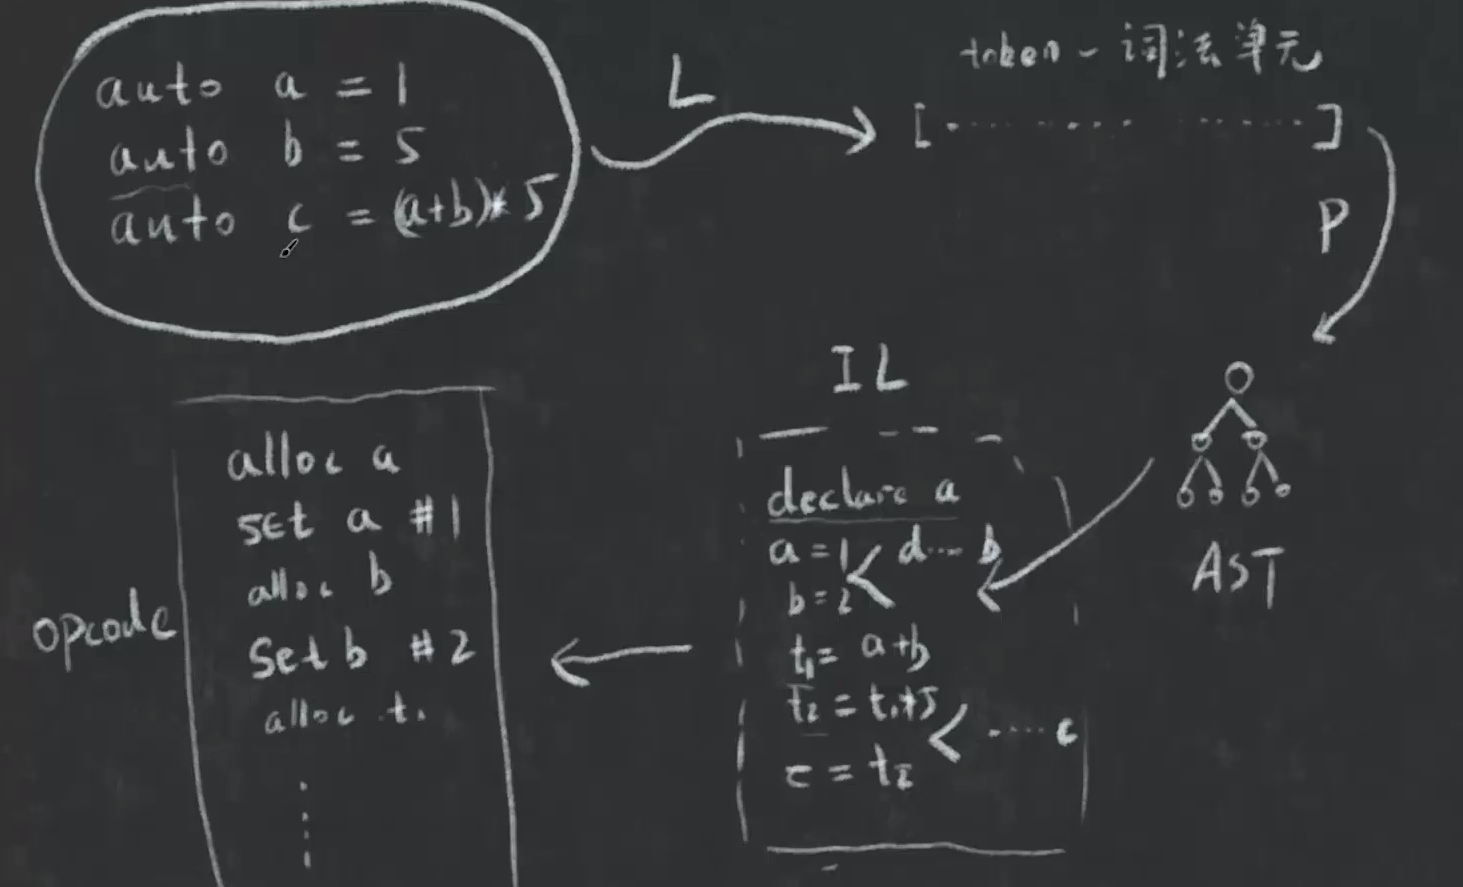 auto a = 1
auto b = 5
auto c = (a+b)* 5
L
token - 词法单元
[ ............ ]
P
AST
IL
declare a
a = 1 < d... b
b = 2
t1 = a+b
t2 = t1+5
< ..... c
c = t2
opcode
alloc a
set a #1
alloc b
Set b #2
alloc t1